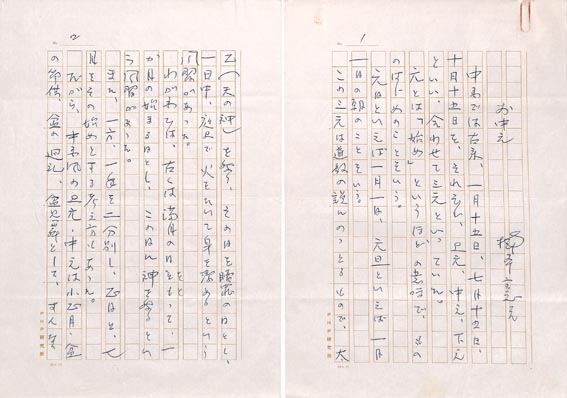 1
お中元
中国では古来、一月十五日、七月十五日、
十月十五日を、それぞれ、上元、中元、下元
といい、合わせて三元といっていた。
元とは「始め」というほどの意味で、もの
のはじめのことをいう。
元日といえば一月一日、元旦といえば一月
一日の朝のことをいう。
この三元は道教の説にのっとるもので、太
2
乙(天の神)を祭り、その日を贖罪の日とし、
一日中、庭で火をたいて身を潔めるという
風習があった。
わがわでは、古くは満月の日をもって、一
か月の始まるとし、この日に神を祭るとい
う風習があった。
また、一方、一年を二分別し、正月と、七
月をその始めとする考え方もあった。
だから、中国風の上元・中元は小正月、盆
の節供、盆の廻礼、盆見舞として、すんなり